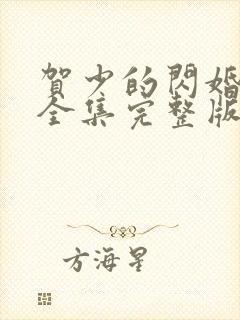 賀少的閃婚
全集完整版
方海星